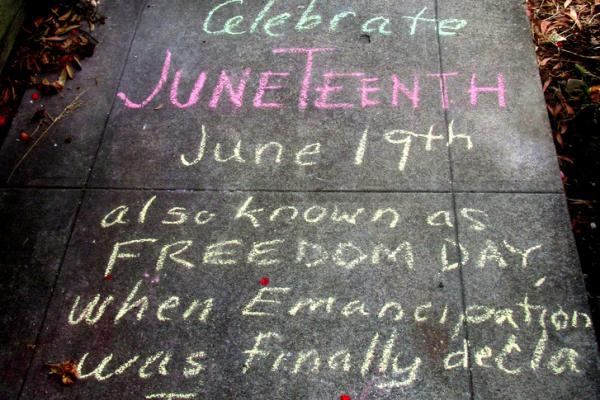 Celebrate
JUNETEENTH
June 19th
also known as
FREEDOM DAY,
when Emancipation
was finally decla